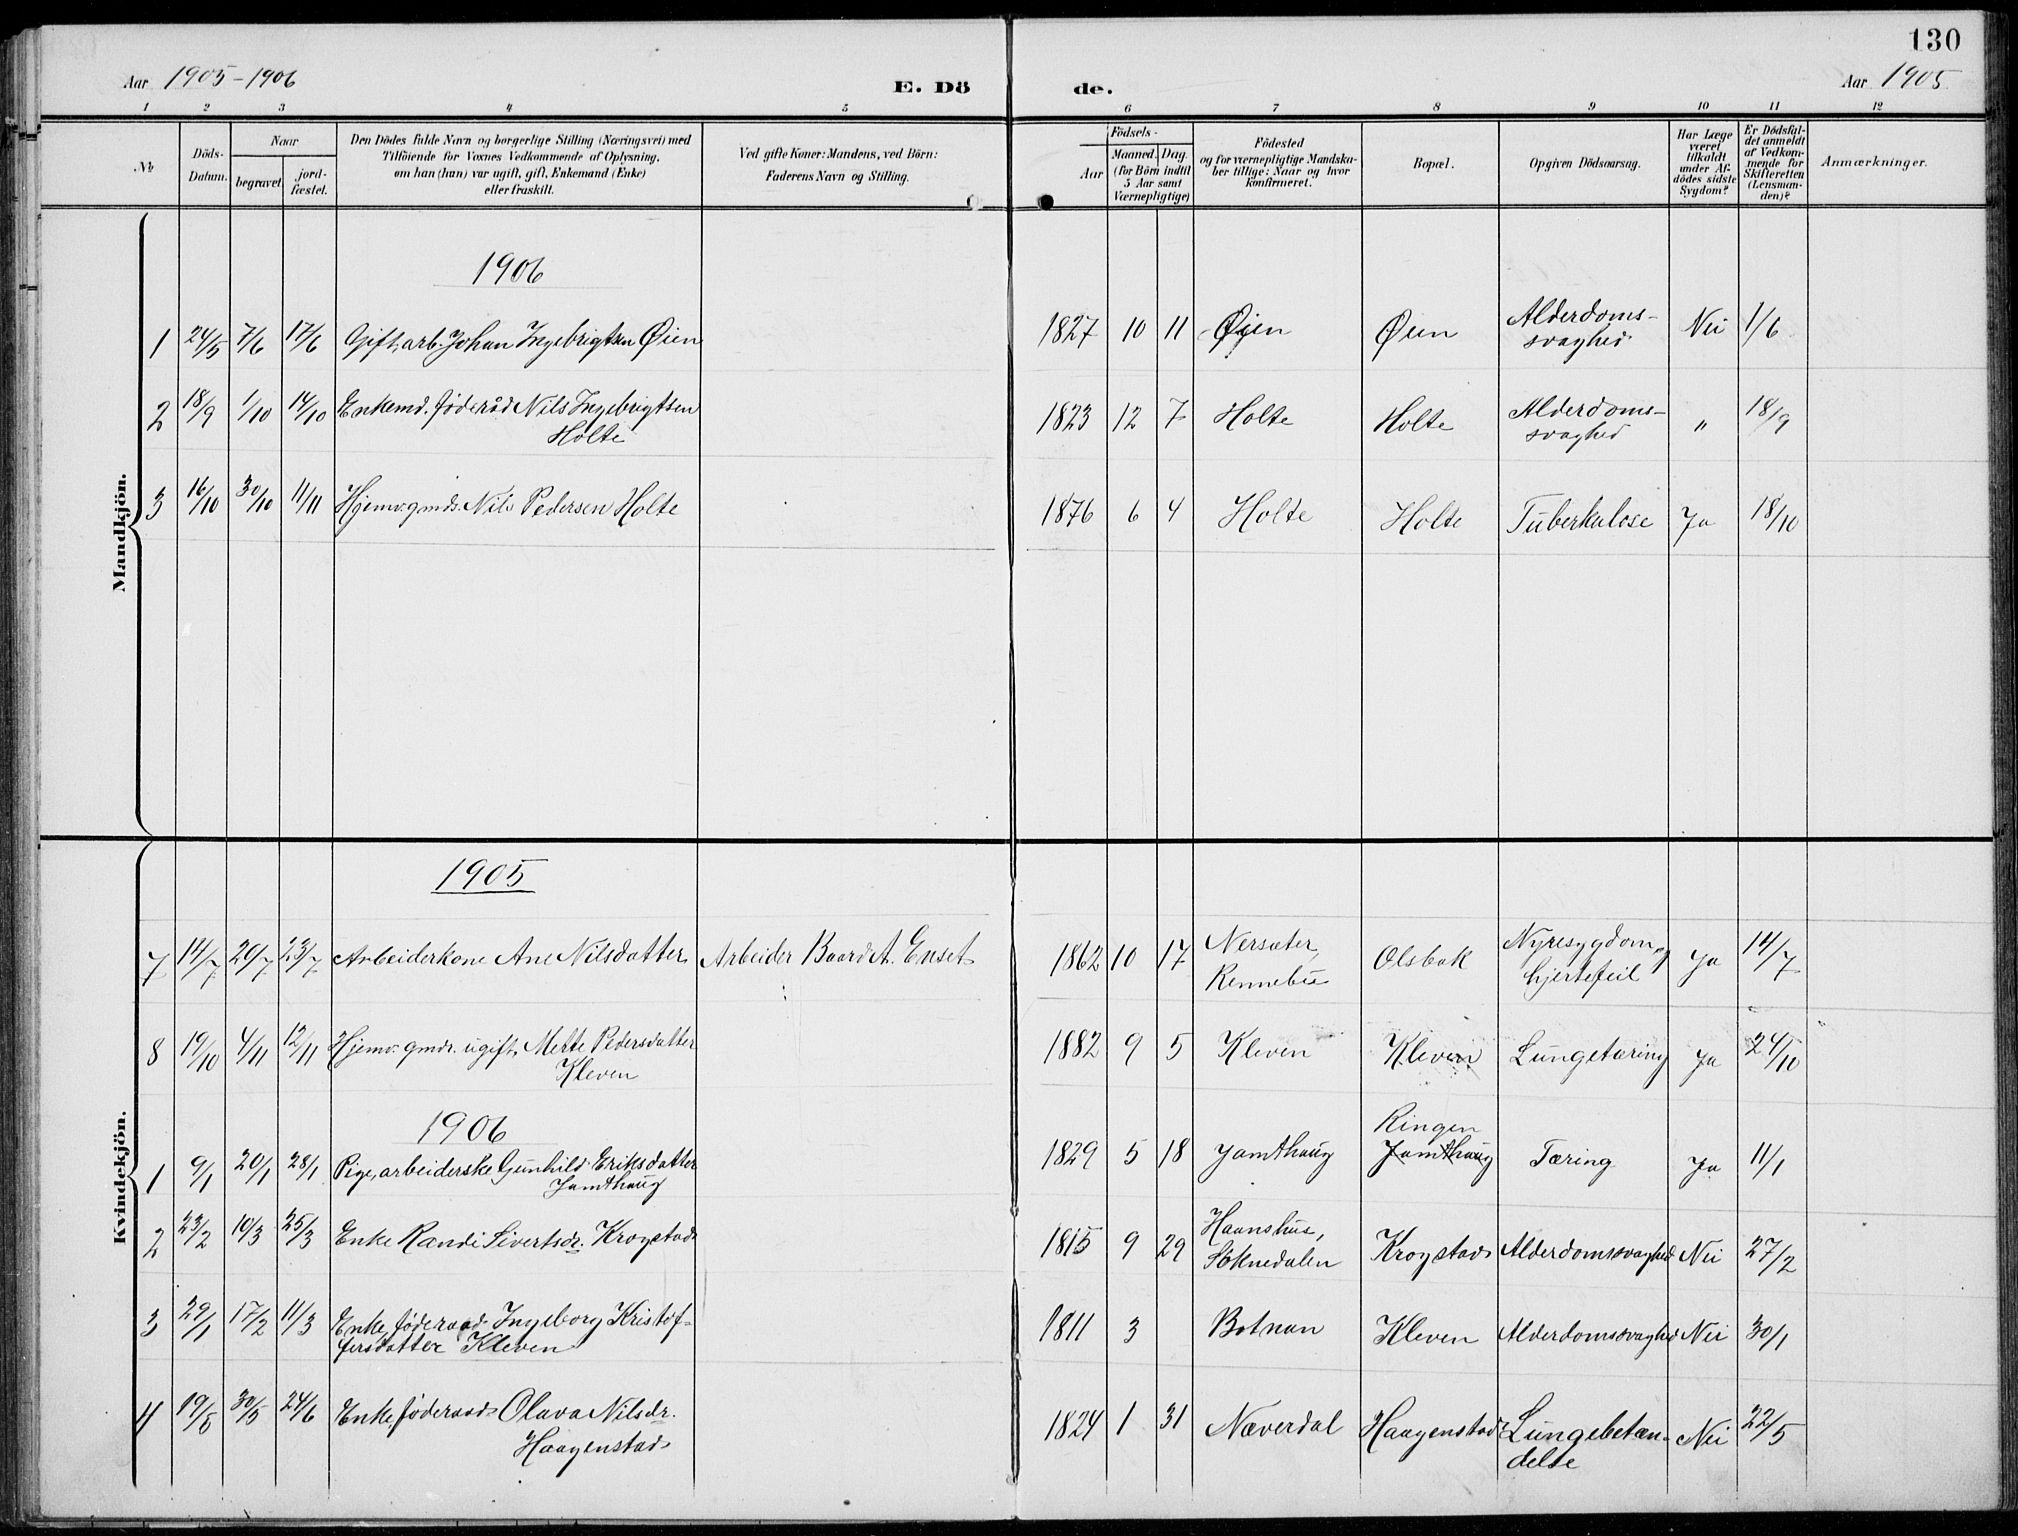 130
Aar 1905-1906 E. Dö de. Aar 1905
1 2 3 4 5 6 7 8 9 10 11 12
No
Döds-
Datum.
Naar
begravet.
jord-
fæstet.
Den Dödes fulde Navn og borgerlige Stilling (Næringsvei) med
Tilföiende for Voxnes Vedkommende af Oplysning,
om han (hun) var ugift, gift, Enkemand (Enke)
eller fraskilt.
Ved gifte Koner: Mandens, ved Börn:
Faderens Navn og Stilling.
Födsels-
Aar
Maaned. Dag.
(for Börn indtil
5 Aar samt
Værnepligtige)
Födested
og for værnepligtige Mandska-
ber tillige: Naar og hvor
konfirmeret.
Bopæl.
Opgiven Dödsaarsag.
Har Læge
været
tilkaldt
under Af-
dödes sidste
Sygdom?
Er Dödsfal-
det anmeldt
af Vedkom-
mende for
Skifteretten
(Lensman-
den)?
Anmærkninger.
Mandkjön.
1906
1 24/5 7/6 17/6 Gift, arb. Johan Ingebrigtsen Øien 1827 10 11 Øien Øien Alderdoms-
svaghed Nei 1/6
2 18/9 1/10 14/10 Enkemd. föderåd Nils Ingebrigtsen
Holte 1823 12 7 Holte Holte Alderdoms-
svaghed " 18/9
3 16/10 30/10 11/11 Hjemv. gmds. Nils Pedersen Holte 1876 6 4 Holte Holte Tuberkulose Ja 18/10
Kvindekjön.
1905
7 14/7 20/7 23/7 Arbeiderkone Ane Nilsdatter Arbeider Baard A. Enset 1862 10 17 Nersæter,
Rennebu Olsbak Nyresygdom og
hjertefeil Ja 14/7
8 19/10 4/11 12/11 Hjemv. gmdr. ugift, Mette Pedersdatter
Kleven 1882 9 5 Kleven Kleven Lungetæring Ja 24/10
1906
1 9/1 20/1 28/1 Pige, arbeiderske Gunhild Eriksdatter
Jamthaug 1829 5 18 Jamthaug Ringen
Jamthaug Tæring Ja 11/1
2 23/2 10/3 25/3 Enke Randi Sivertsdr. Krogstad 1815 9 29 Haanshus,
Soknedalen Krogstad Alderdomssvaghed Nei 27/2
3 29/1 17/2 11/3 Enke, föderaad Ingeborg Kristof-
fersdatter Kleven 1811 3 Botnan Kleven Alderdomssvaghed Nei 30/1
4 19/5 30/5 24/6 Enke, föderaad Olava Nilsdr.
Haagenstad 1824 1 31 Næverdal Haagenstad Lungebetæn-
delse Nei 22/5